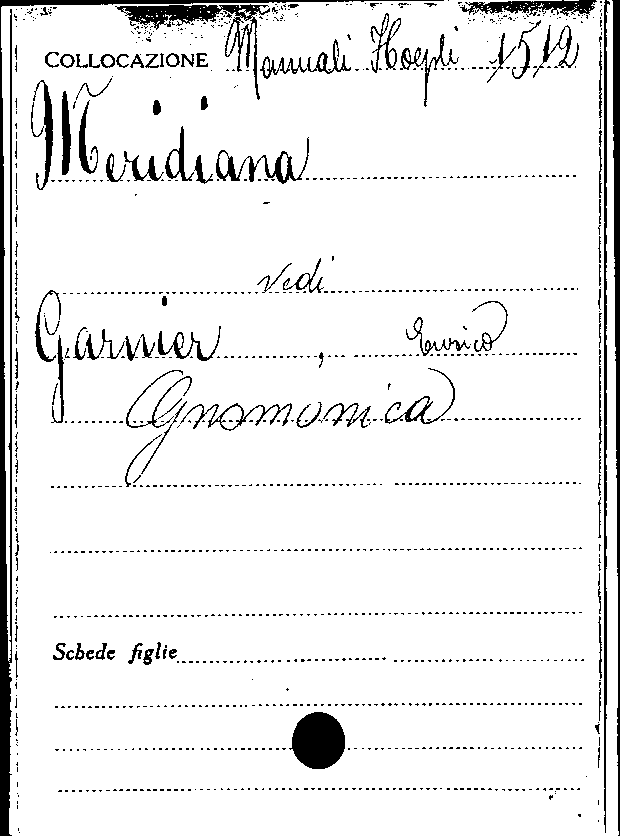 COLLOCAZIONE Manuali Hoepli 1512
Meridiana
vedi
Garnier, Enrico
Gnomonica
Schede figlie